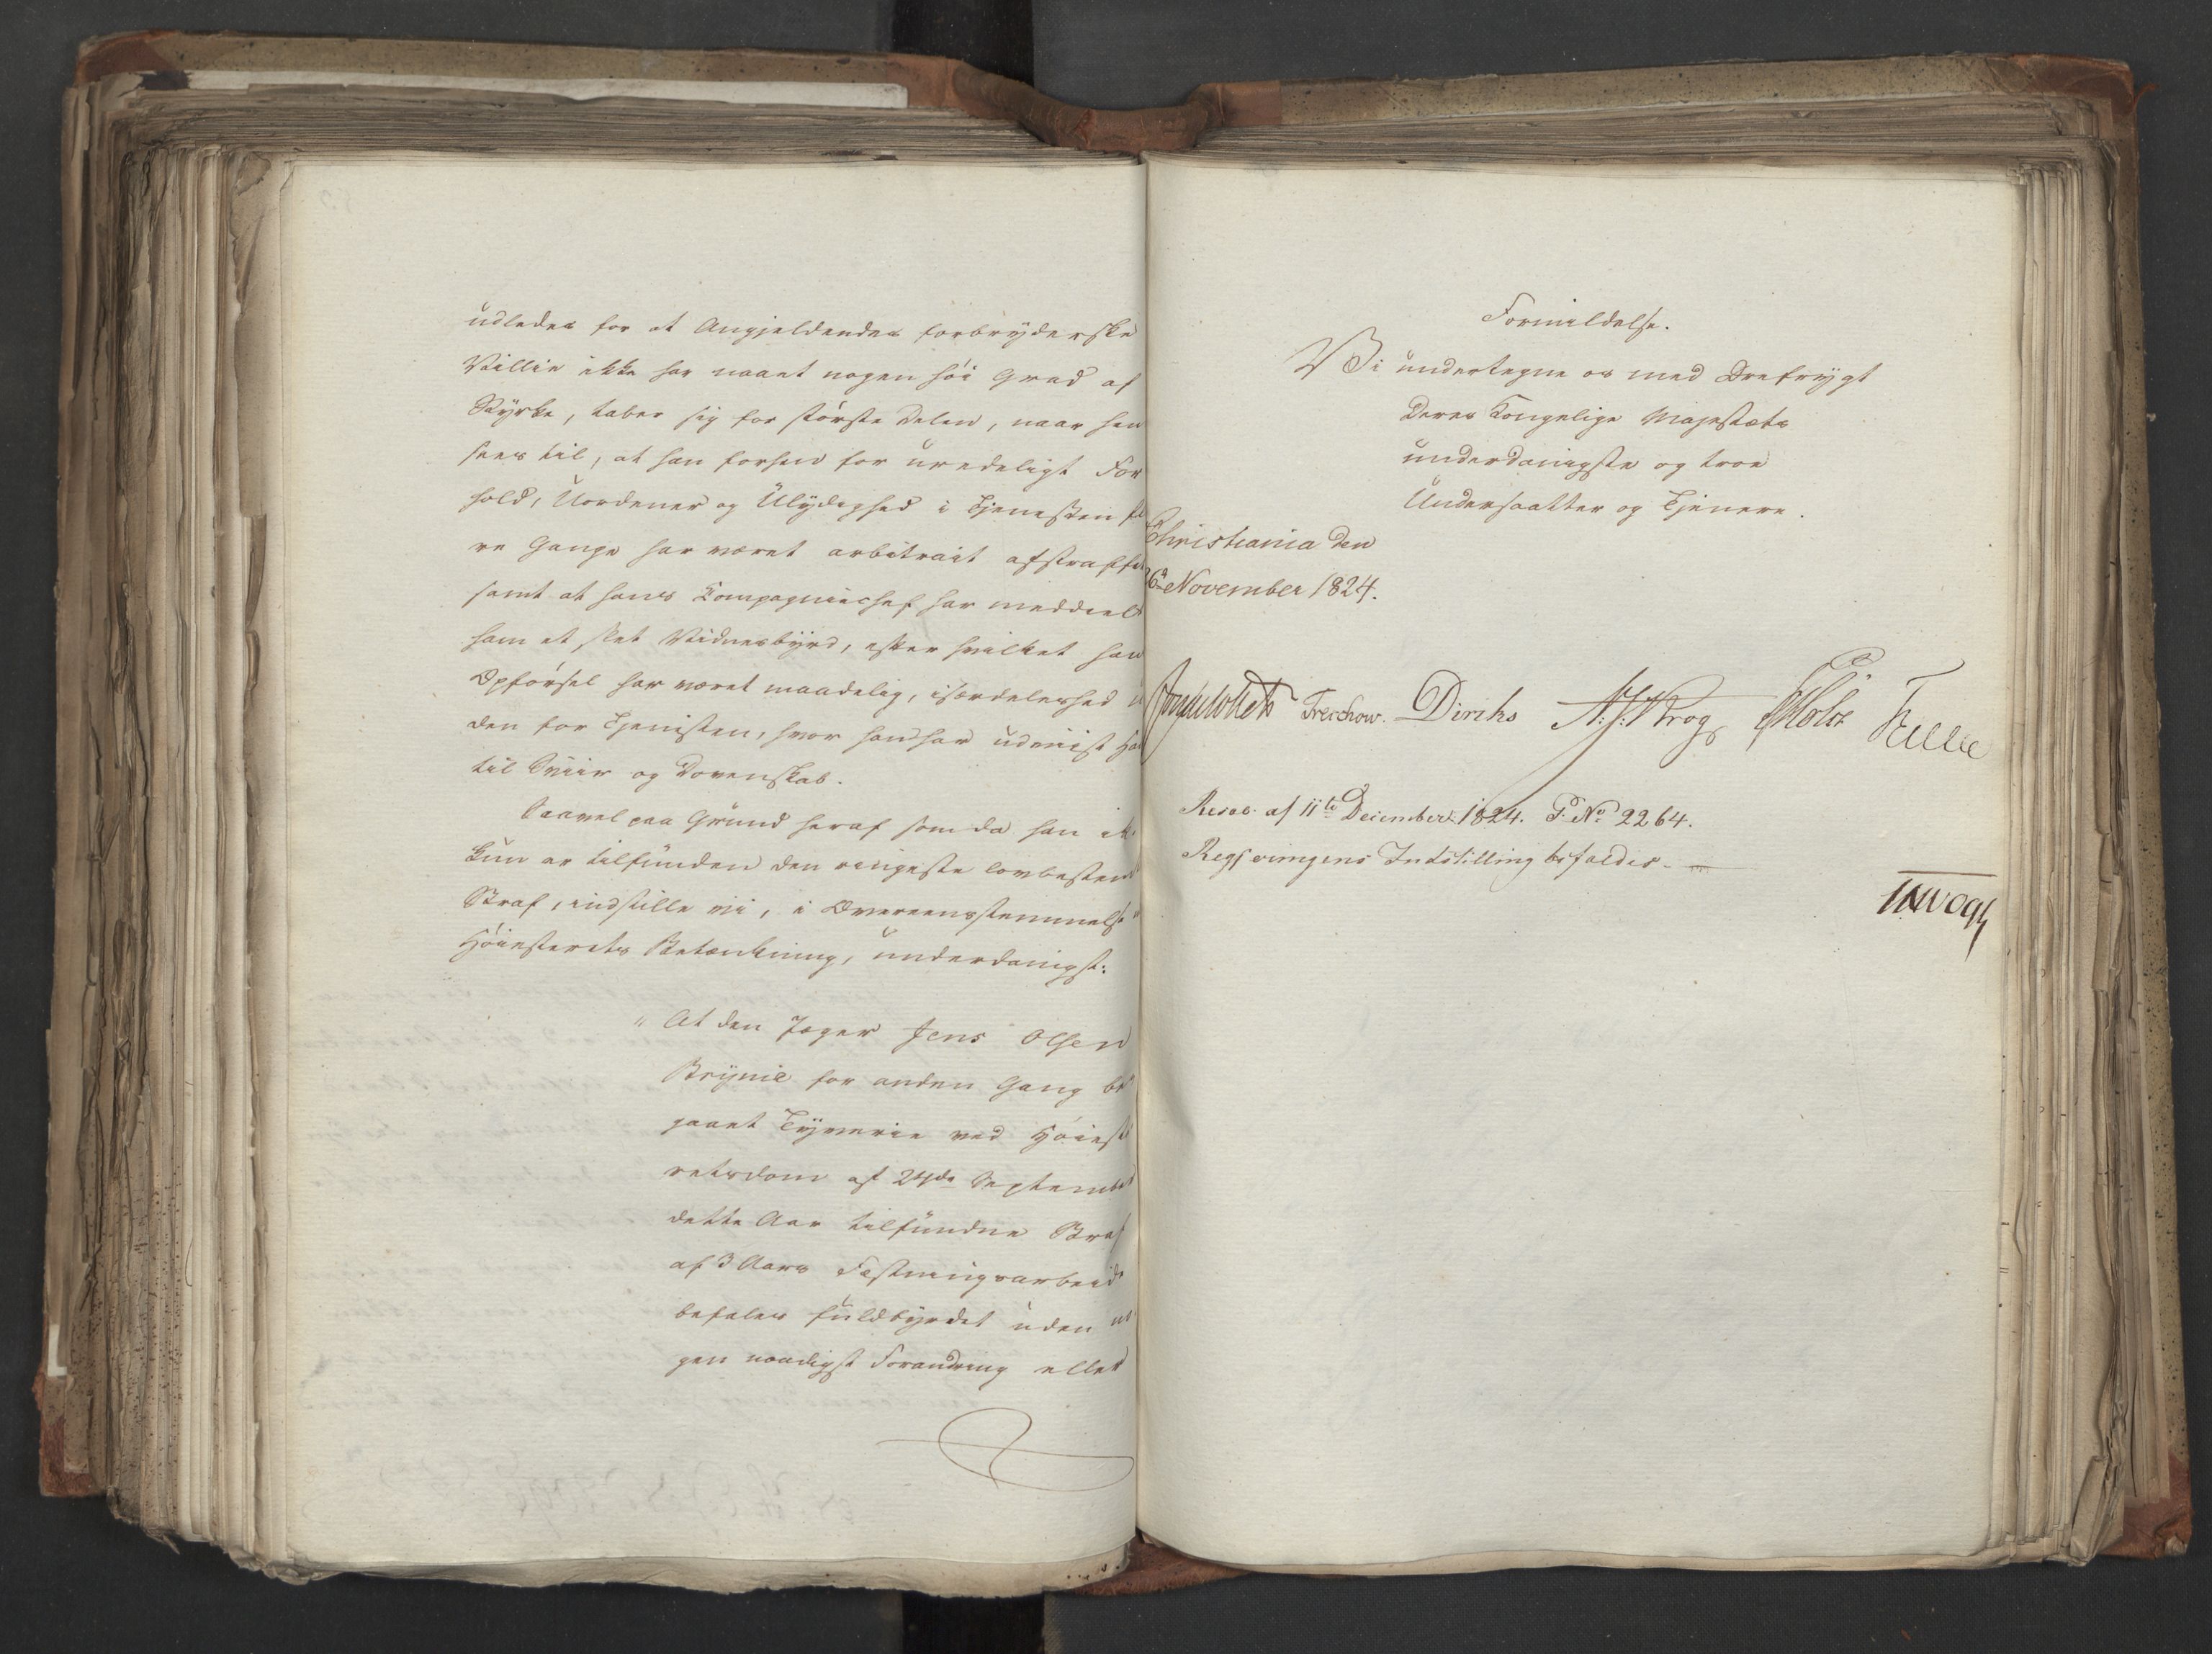 udledes for at Angjeldendes forbryderske
Villie ikke har naaet nogen høi Grad af
Styrke, taber sig for største Delen, naar hen
sees til, at han forhen for uredeligt For
hold, Uordener og Ulydighed i Tjenesten fle
re Gange har været arbitrairt afstraffet
samt at hans Compagniechef har meddeelt
ham et slet Vidnesbyrd, efter hvilket hans
Opførsel har været maadelig, isærdeleshed u
den for Tjenesten, hvor han har udviist Hang
til Sviir og Dovenskab.
Saavel paa Grund heraf som da han ikke
kun er tilfunden den ringeste lovbestemte
Straf, indstille vi, i Overeensstemmelse
Høiesterets Betænkning, underdanigst:
" At den Jæger Jens Olsen
Brynie for anden Gang be
gaaet Tyverie ved Høieste
retsdom af 24de September
dette Aar tilfundne Straf
af 3 Aars Fæstningsarbeide
befales fuldbyrdet uden no
gen naadigst Forandring eller
Formildelse.
Vi undertegne os med Ærefrygt
Deres Kongelige Majestæts
underdanigste og troe
Undersaatter og Tjenere.
Christiania den
26de November 1824.
Treschow. Diriks A. J. Krog Holst Falbe
Resol. af 11te December 1824. P. No 2264.
Regjeringens Indstilling bifaldes.
Vogt